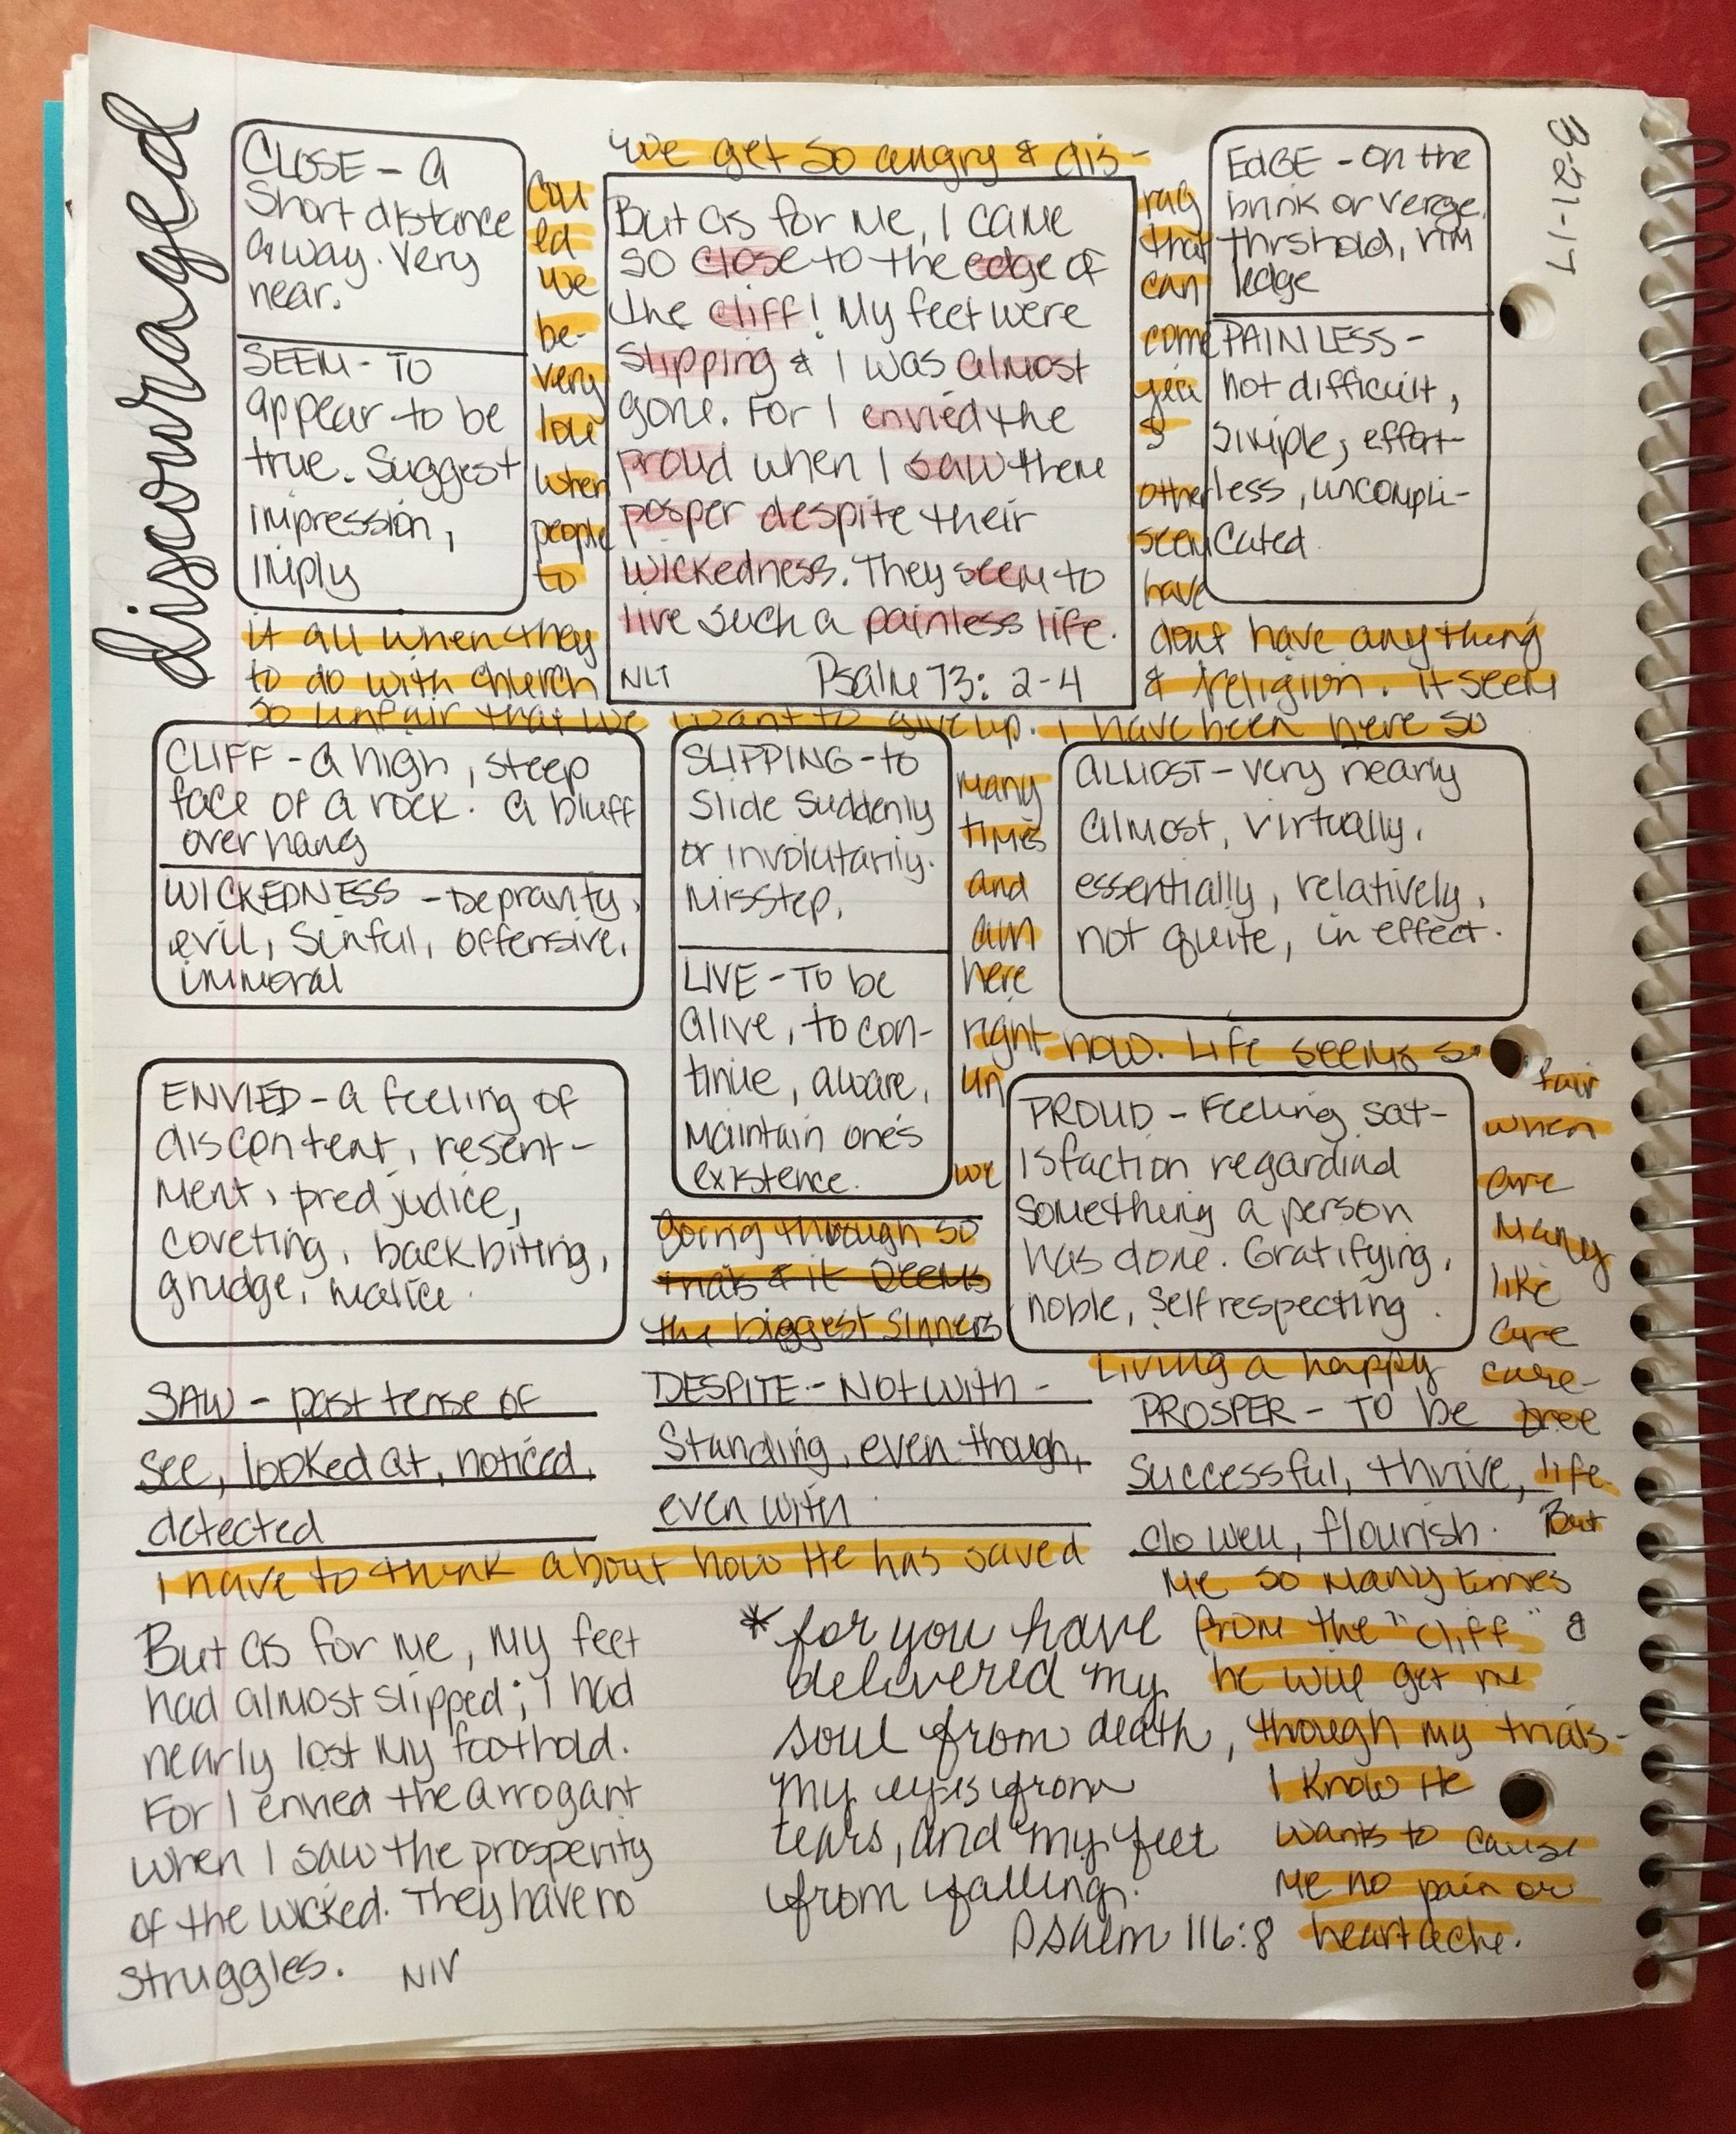 discouraged
3-21-17
CLOSE - a
short distance
away. Very
near.
SEEM - TO
appear to be
true. Suggest
impression,
imply
we get so angry & dis-
cou
ed
we
be-
very
low
when
people
to
But as for me, I came
so close to the edge of
the cliff! My feet were
slipping & I was almost
gone. For I envied the
proud when I saw them
posper despite their
wickedness. They seem to
live such a painless life.
NLT Psalm 73: 2-4
rag
that
can
come
&
other
seem
have
EDGE - on the
brink or verge,
thrshold, rim
ledge
PAINLESS -
not difficult,
simple, effort-
less, uncompli-
cated.
it all when they dont have anything
to do with church & religion. it seem
so unfair that we want to give up. I have been here so
CLIFF - a high, steep
face of a rock. a bluff
overhang
WICKEDNESS - Depravity,
evil, sinful, offensive,
immoral
SLIPPING - to
slide suddenly
or involutarily.
misstep,
LIVE - TO be
alive, to con-
tinue, aware,
maintain one's
existence.
many
times
and
am
here
right now. Life seems so
un
fair
ALMOST - very nearly
almost, virtually,
essentially, relatively,
not quite, in effect.
ENVIED - a feeling of
discontent, resent-
ment, predjudice,
coveting, backbiting,
grudge, malice.
PROUD - Feeling sat-
isfaction regardind
something a person
has done. Gratifying,
noble, self respecting.
when
we
are
going through so
many
trials & it seems
like
the biggest sinners
are
living a happy
care-
free
life.
But
SAW - past tense of
see, looked at, noticed,
detected
DESPITE - Notwith-
standing, even though,
even with
PROSPER - TO be
successful, thrive,
do well, flourish.
I have to think about how He has saved
me so many times
from the "cliff" &
he will get me
though my trials-
I know He
wants to cause
me no pain or
heartache.
But as for me, my feet
had almost slipped; I had
nearly lost my foothold.
For I envied the arrogant
when I saw the prosperity
of the wicked. They have no
struggles. NIV
*for you have
delivered my
soul from death,
my eyes from
tears, and my feet
from falling.
Psalm 116:8